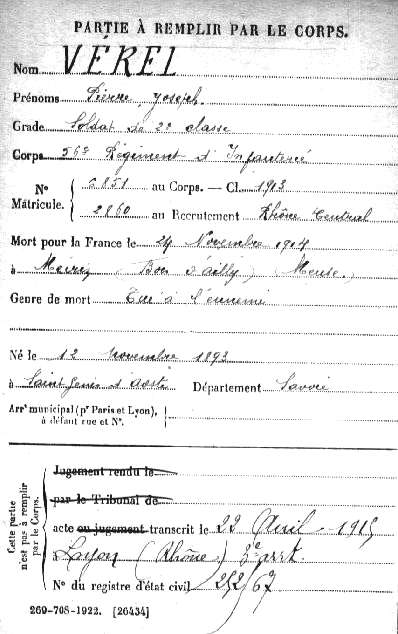 PARTIE À REMPLIR PAR LE CORPS.
Nom VÉREL
Prénoms Pierre, Joseph
Grade Soldat de 2e classe
Corps 56e Régiment d'Infanterie
N° Matricule. { 5851 au Corps. — Cl. 1913
2860 au Recrutement Rhône Central
Mort pour la France le 24 Novembre 1914
à (Bois d'ailly) Meuse
Genre de mort Tué à l'ennemi
Né le 12 novembre 1893
à Saint Genix d'aoste Département Savoie
Arrt municipal (pr Paris et Lyon), à défaut rue et N°.
Cette partie n'est pas à remplir par le Corps.
Jugement rendu le
par le Tribunal de
acte ou jugement transcrit le 22 Avril 1915
à Lyon (Rhône) 3e arrt.
N° du registre d'état civil 252/67
269-708-1922. [26434]